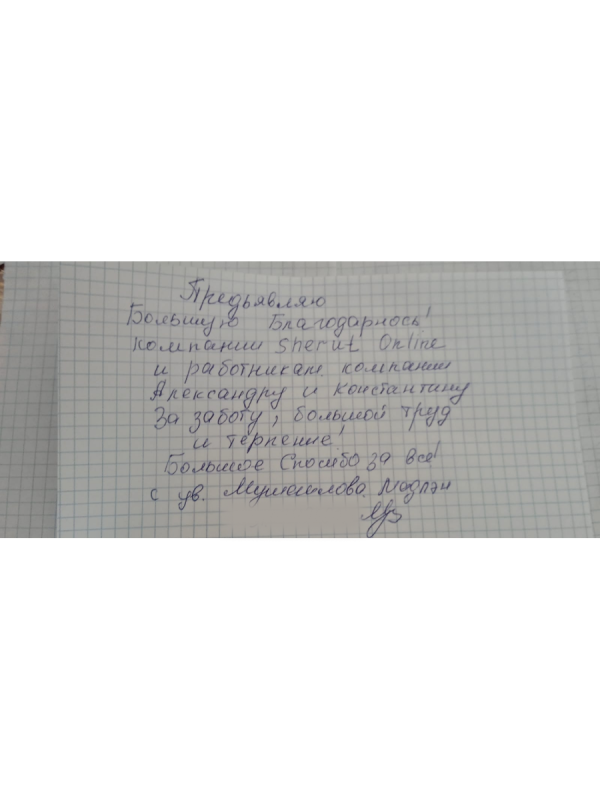 Предьявляю
Большую Благодарнось!
компании Sherut Online
и работникам компании
Александру и Константину
За заботу, большой труд
и терпение!
Большое Спасибо за всё!
с ув. Мадлэн